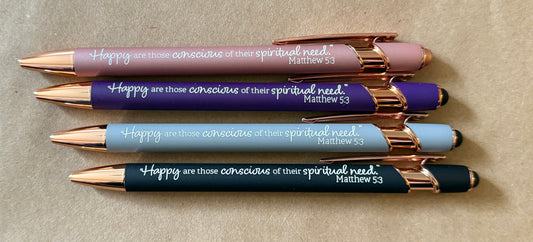 Happy are those conscious of their spiritual need."
Matthew 5:3
Happy are those conscious of their spiritual need."
Matthew 5:3
Happy are those conscious of their spiritual need."
Matthew 5:3
Happy are those conscious of their spiritual need."
Matthew 5:3